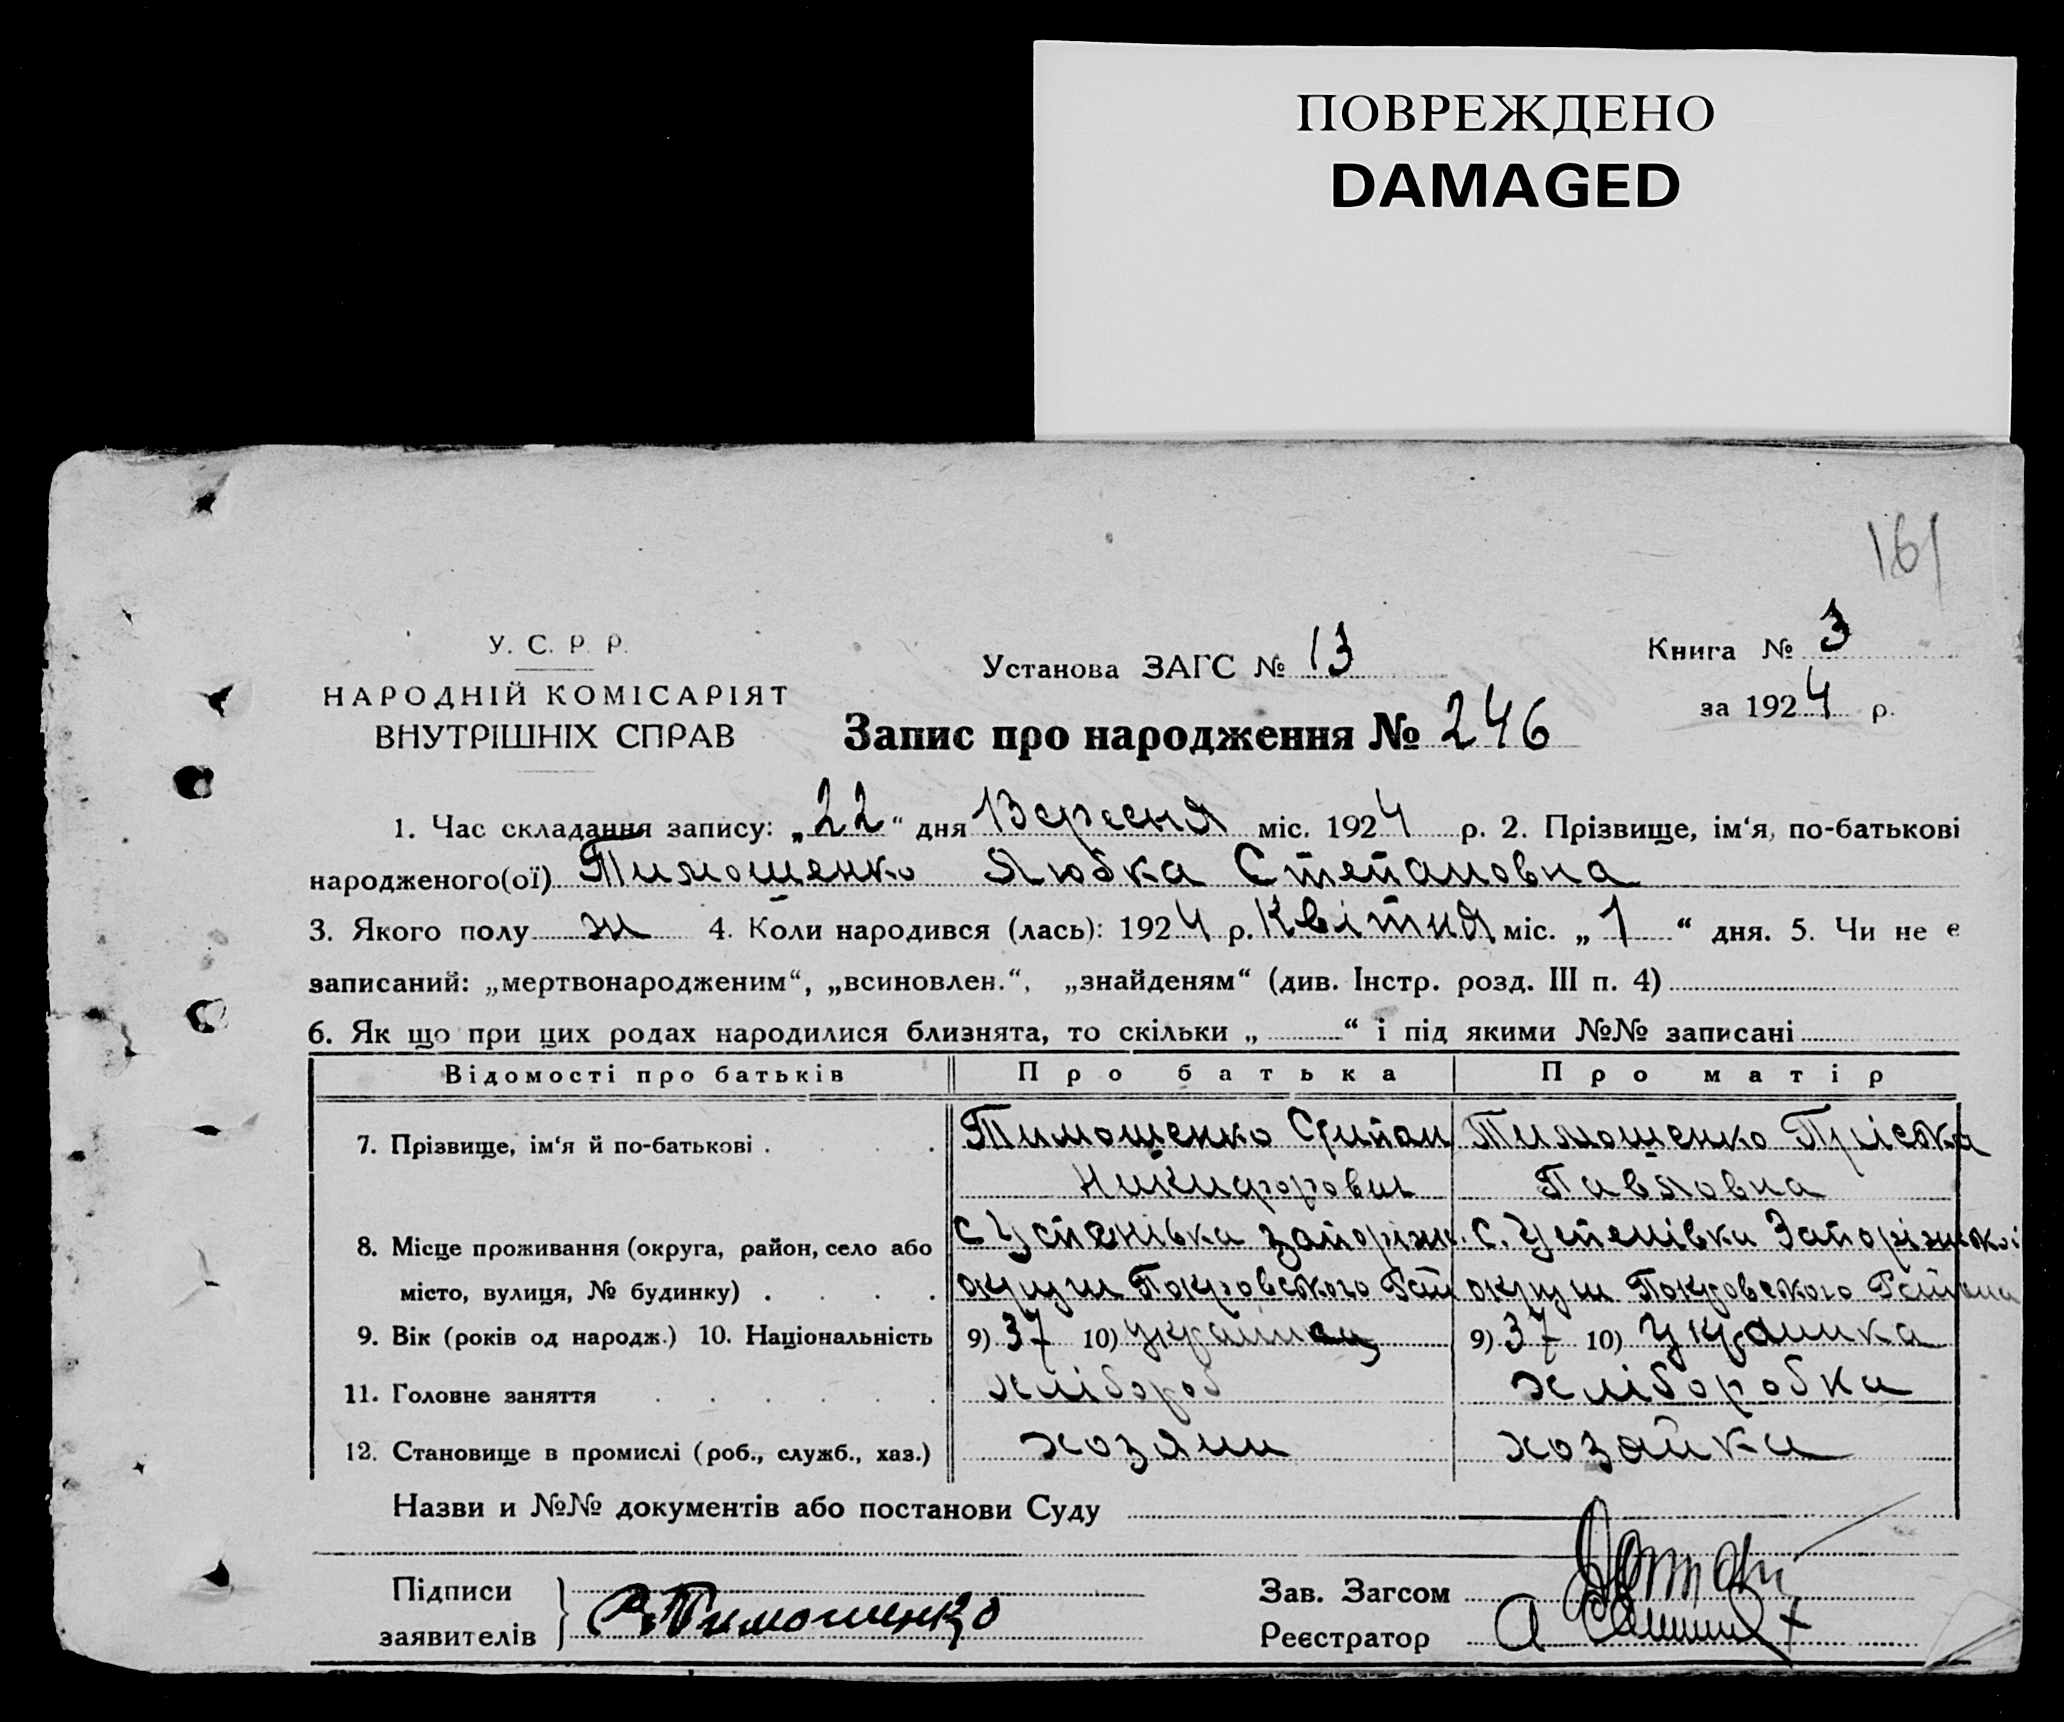 ПОВРЕЖДЕНО
DAMAGED
161
У. С. Р. Р.
НАРОДНІЙ КОМІСАРІЯТ
ВНУТРІШНІХ СПРАВ
Установа ЗАГС № 13
Книга № 3
за 1924 р.
Запис про народження № 246
1. Час складання запису: „22“ дня Вересня міс. 1924 р. 2. Прізвище, ім‘я, по-батькові
народженого(ої) Тимошенко Любка Степановна
3. Якого полу ж 4. Коли народився (лась): 1924 р. Квітня міс. „1“ дня. 5. Чи не є
записаний: „мертвонародженим“, „всиновлен.“, „знайденям“ (див. Інстр. розд. III п. 4)
6. Як що при цих родах народилися близнята, то скільки „ “ і під якими №№ записані
Відомості про батьків Про батька Про матір
7. Прізвище, ім‘я й по-батькові . . . . Тимошенко Степан Тимошенко Пріська
Никифорович Павловна
8. Місце проживання (округа, район, село або С Успенівка Запоріж. С. Успенівка Запоріжської
місто, вулиця, № будинку) . . . . округи Покровського Рай округи Покровського Района
9. Вік (років од народж.) 10. Національність 9) 37 10) Українец 9) 37 10) Українка
11. Головне заняття . . . . . . хлібороб хліборобка
12. Становище в промислі (роб., служб., хаз.) хозяин хозяйка
Назви и №№ документів або постанови Суду
Підписи
заявителів
Тимошенко
Зав. Загсом
Реєстратор А